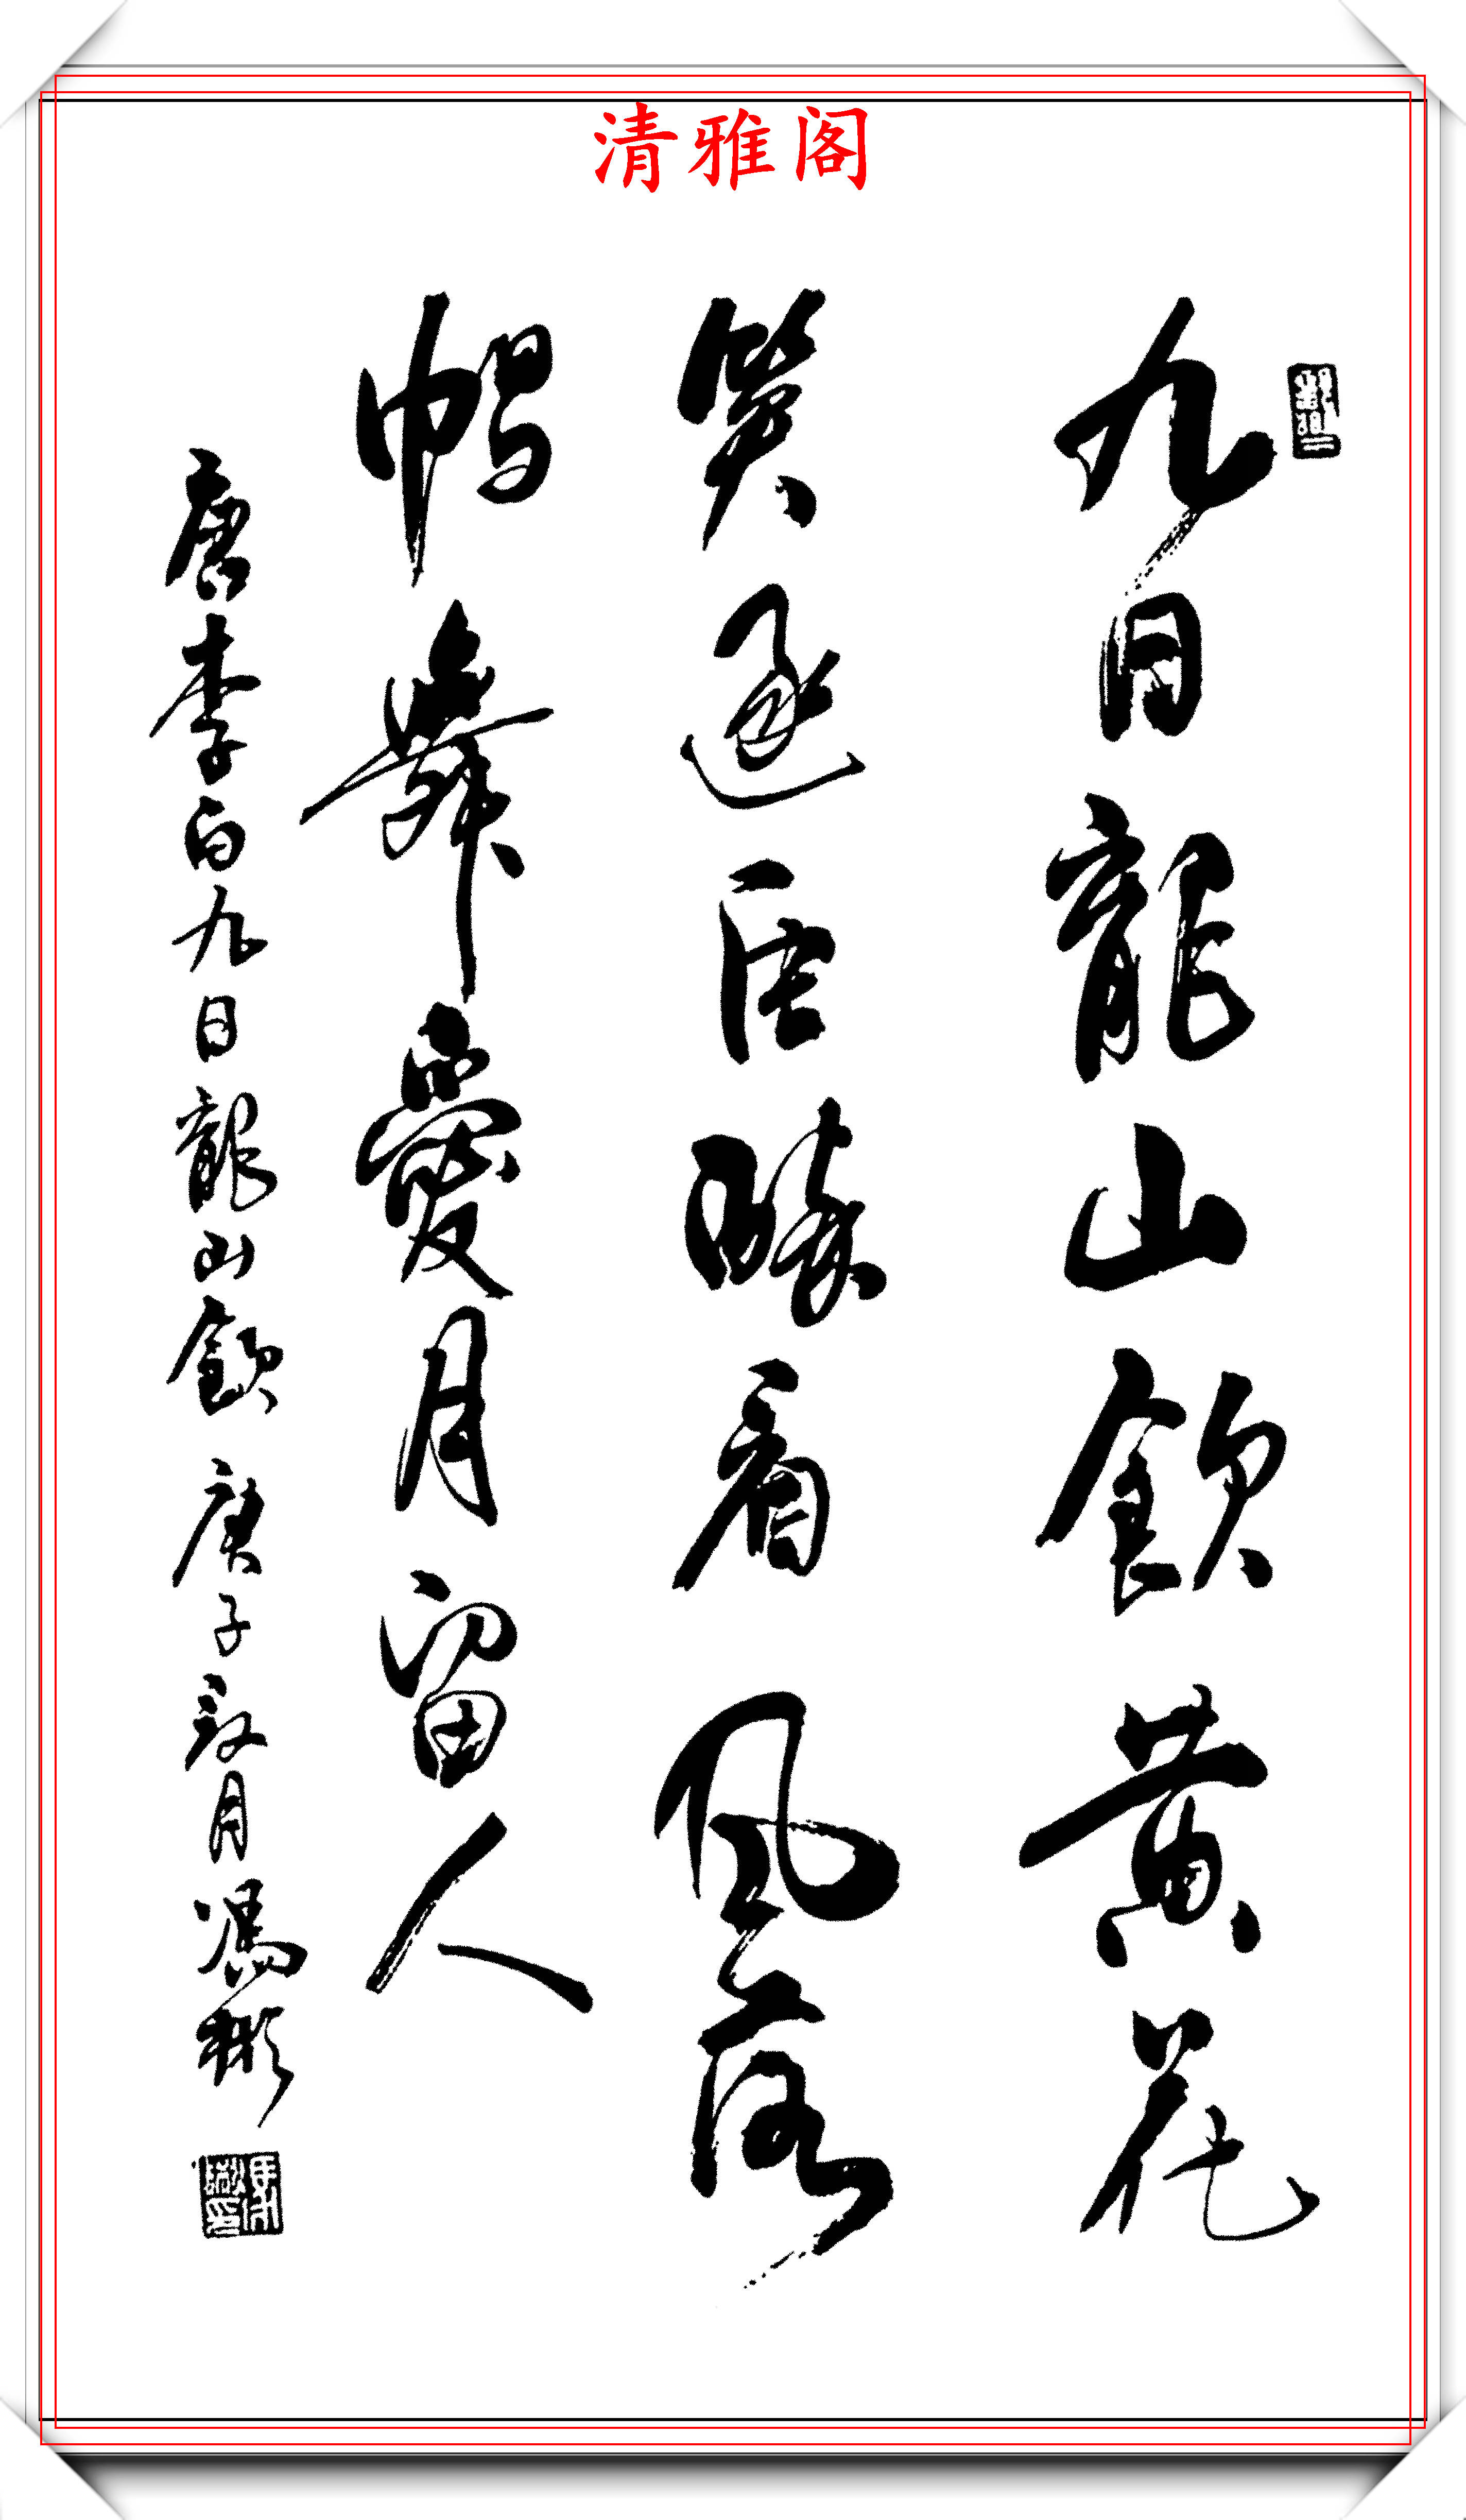 清雅阁
九日龍山飲黄花
笑逐臣醉看風落
帽舞愛月留人
唐李白九日龍山飲 庚子秋月馮彬